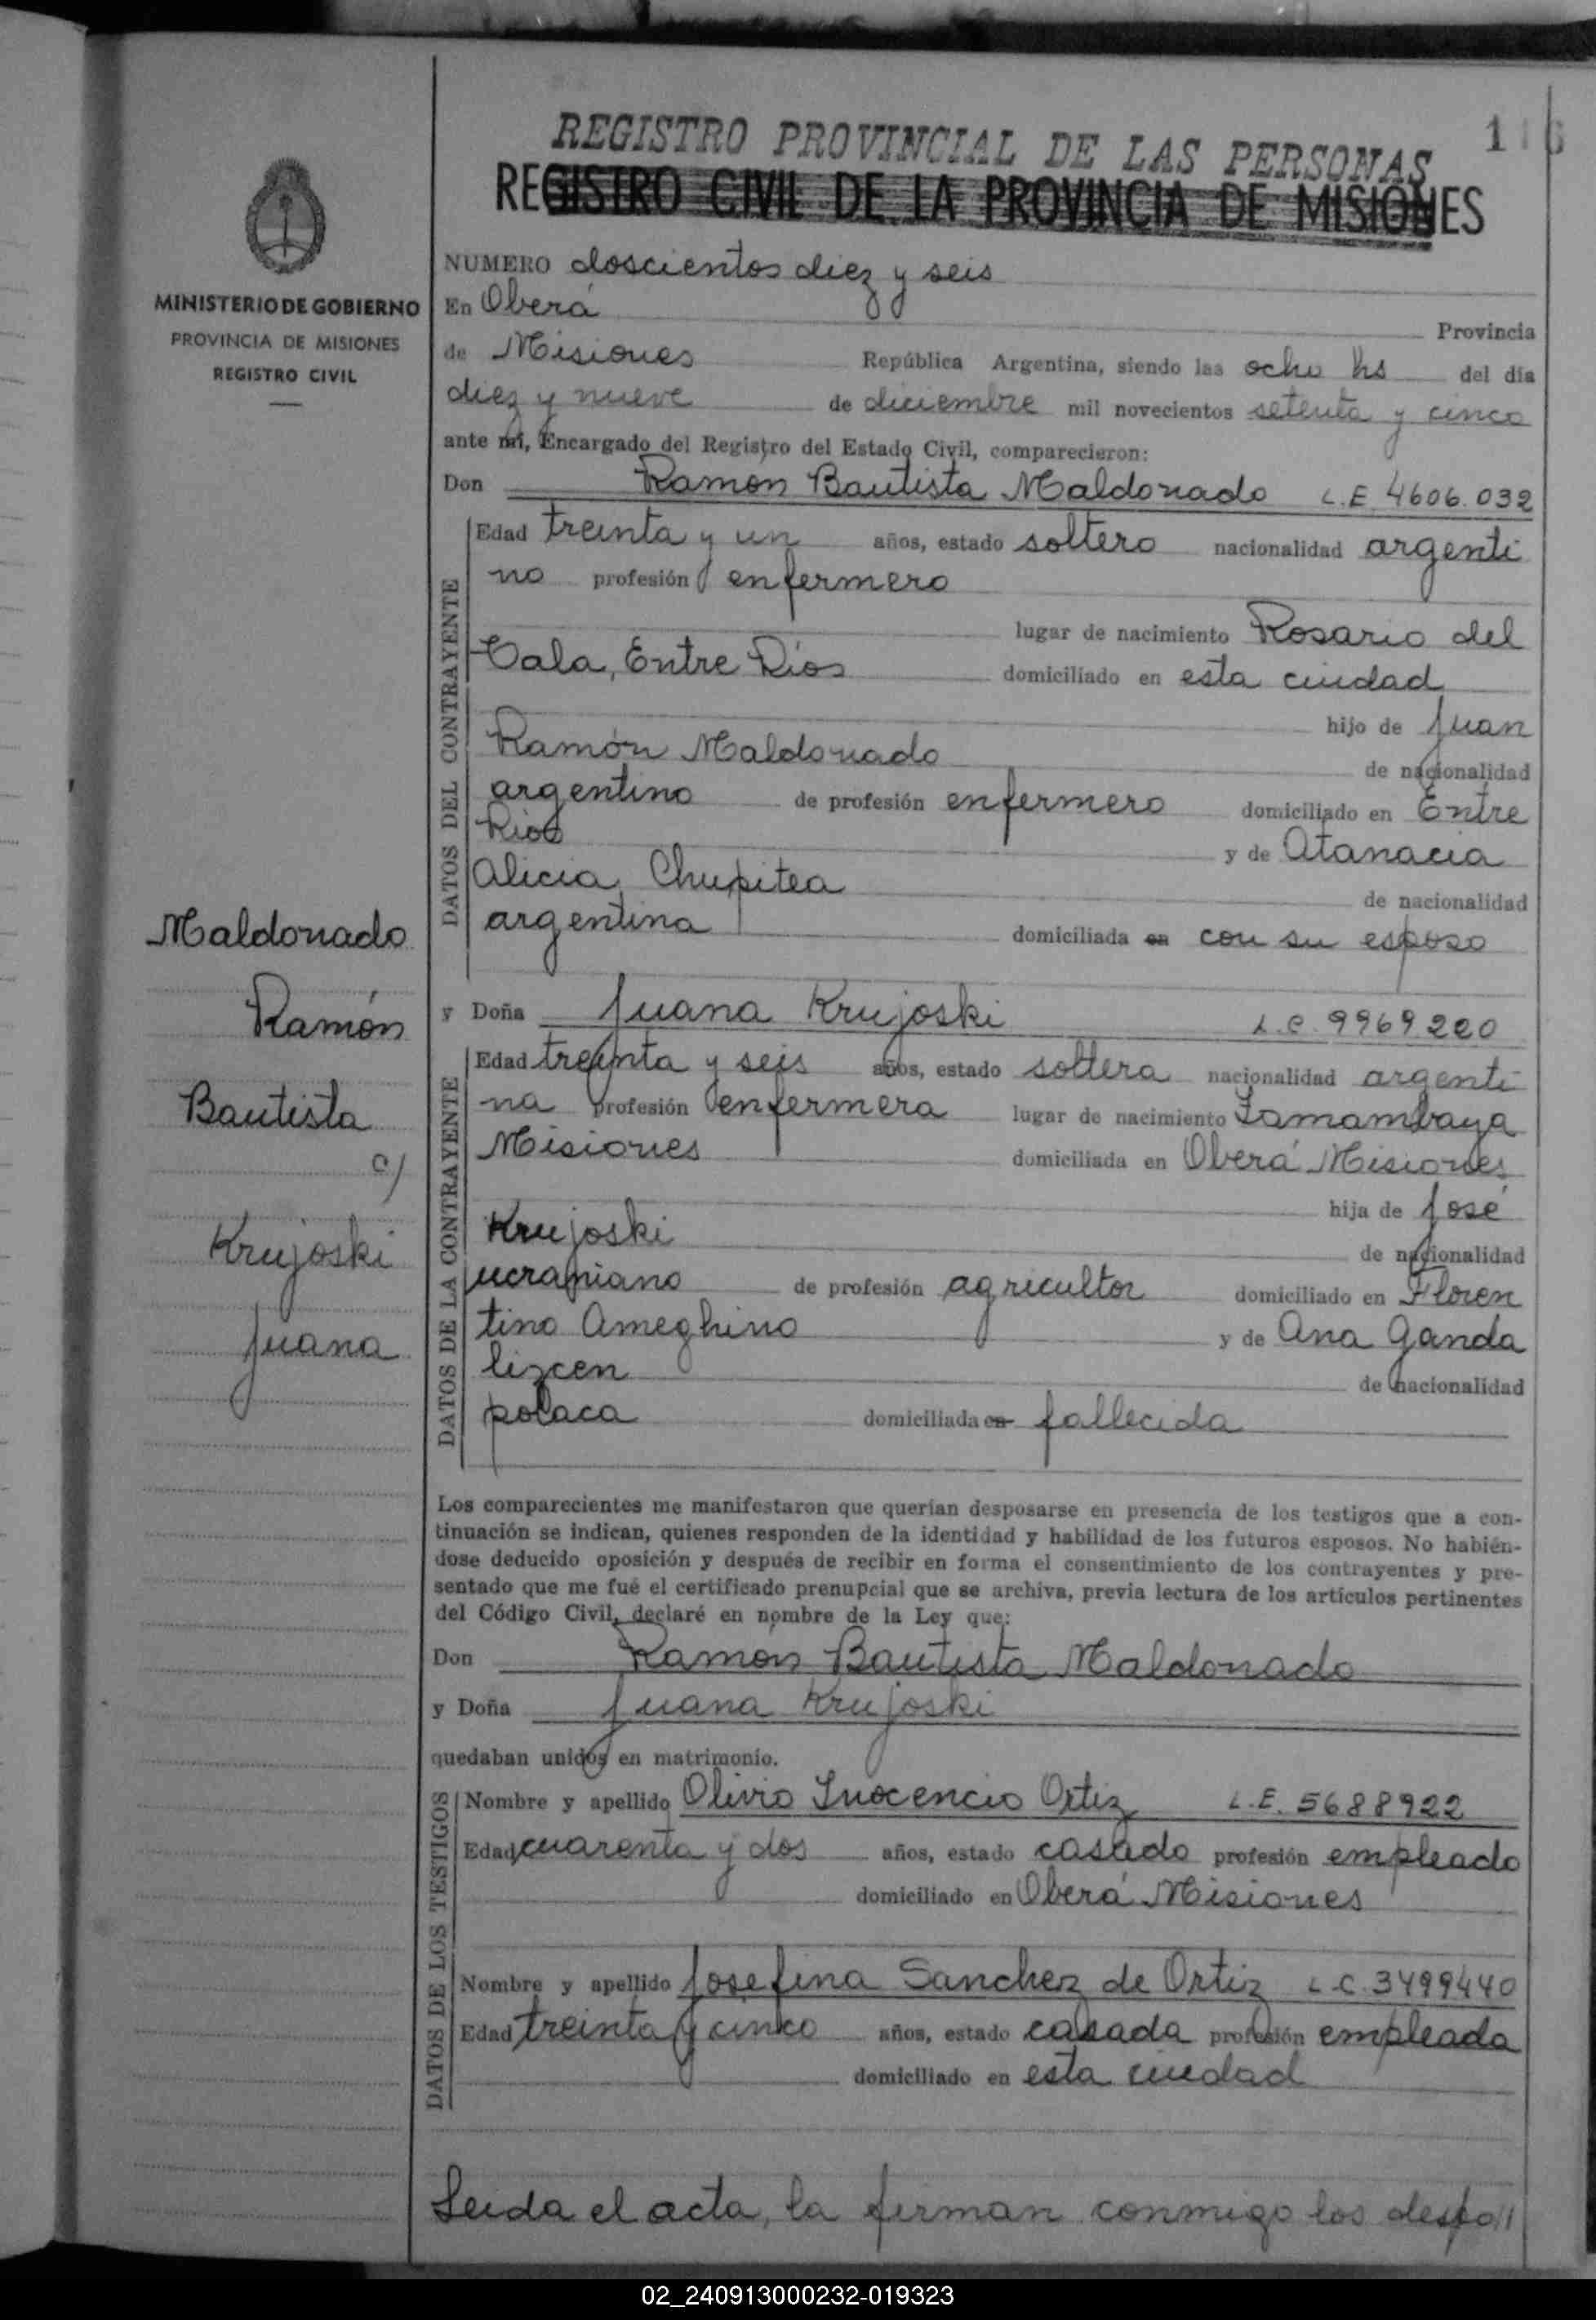 REGISTRO PROVINCIAL DE LAS PERSONAS
116
REGISTRO CIVIL DE LA PROVINCIA DE MISIONES
MINISTERIO DE GOBIERNO
PROVINCIA DE MISIONES
REGISTRO CIVIL
NUMERO doscientos diez y seis
En Oberá Provincia
de Misiones República Argentina, siendo las ocho hs del día
diez y nueve de diciembre mil novecientos setenta y cinco
ante mí, Encargado del Registro del Estado Civil, comparecieron:
Don Ramón Bautista Maldonado L.E. 4606.032
DATOS DEL CONTRAYENTE
Edad treinta y un años, estado soltero nacionalidad argenti
no profesión enfermero
lugar de nacimiento Rosario del
Tala, Entre Ríos domiciliado en esta ciudad
hijo de Juan
Ramón Maldonado de nacionalidad
argentino de profesión enfermero domiciliado en Entre
Rios y de Atanacia
Alicia Chupitea de nacionalidad
argentina domiciliada en con su esposo
Maldonado
Ramón
Bautista
c/
Krujoski
Juana
y Doña Juana Krujoski L.C. 9969220
DATOS DE LA CONTRAYENTE
Edad treinta y seis años, estado soltera nacionalidad argenti
na profesión enfermera lugar de nacimiento Tamambaya
Misiones domiciliada en Oberá Misiones
hija de José
Krujoski de nacionalidad
ucraniano de profesión agricultor domiciliado en Floren
tino Ameghino y de Ana Ganda
lizcen de nacionalidad
polaca domiciliada en fallecida
Los comparecientes me manifestaron que querían desposarse en presencia de los testigos que a con-
tinuación se indican, quienes responden de la identidad y habilidad de los futuros esposos. No habién-
dose deducido oposición y después de recibir en forma el consentimiento de los contrayentes y pre-
sentado que me fué el certificado prenupcial que se archiva, previa lectura de los artículos pertinentes
del Código Civil, declaré en nombre de la Ley que:
Don Ramón Bautista Maldonado
y Doña Juana Krujoski
quedaban unidos en matrimonio.
DATOS DE LOS TESTIGOS
Nombre y apellido Olivio Inocencio Ortiz L.E. 5688922
Edad cuarenta y dos años, estado casado profesión empleado
domiciliado en Oberá Misiones
Nombre y apellido Josefina Sanchez de Ortiz L.C. 3499440
Edad treinta y cinco años, estado casada profesión empleada
domiciliado en esta ciudad
Leida el acta, la firman conmigo los despo//
02_240913000232-019323